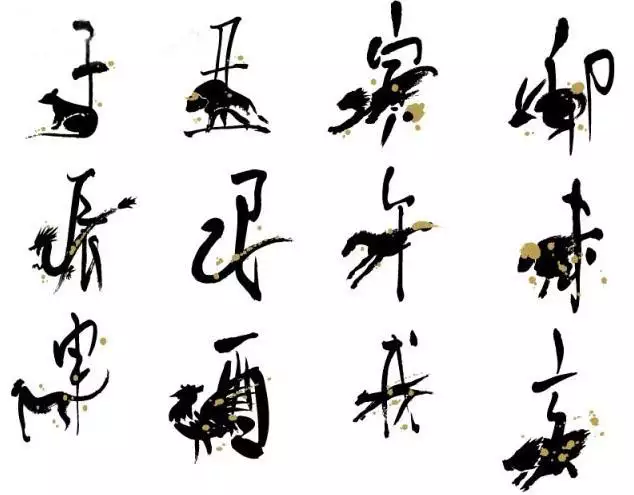 子丑寅卯
辰巳午未
申酉戌亥